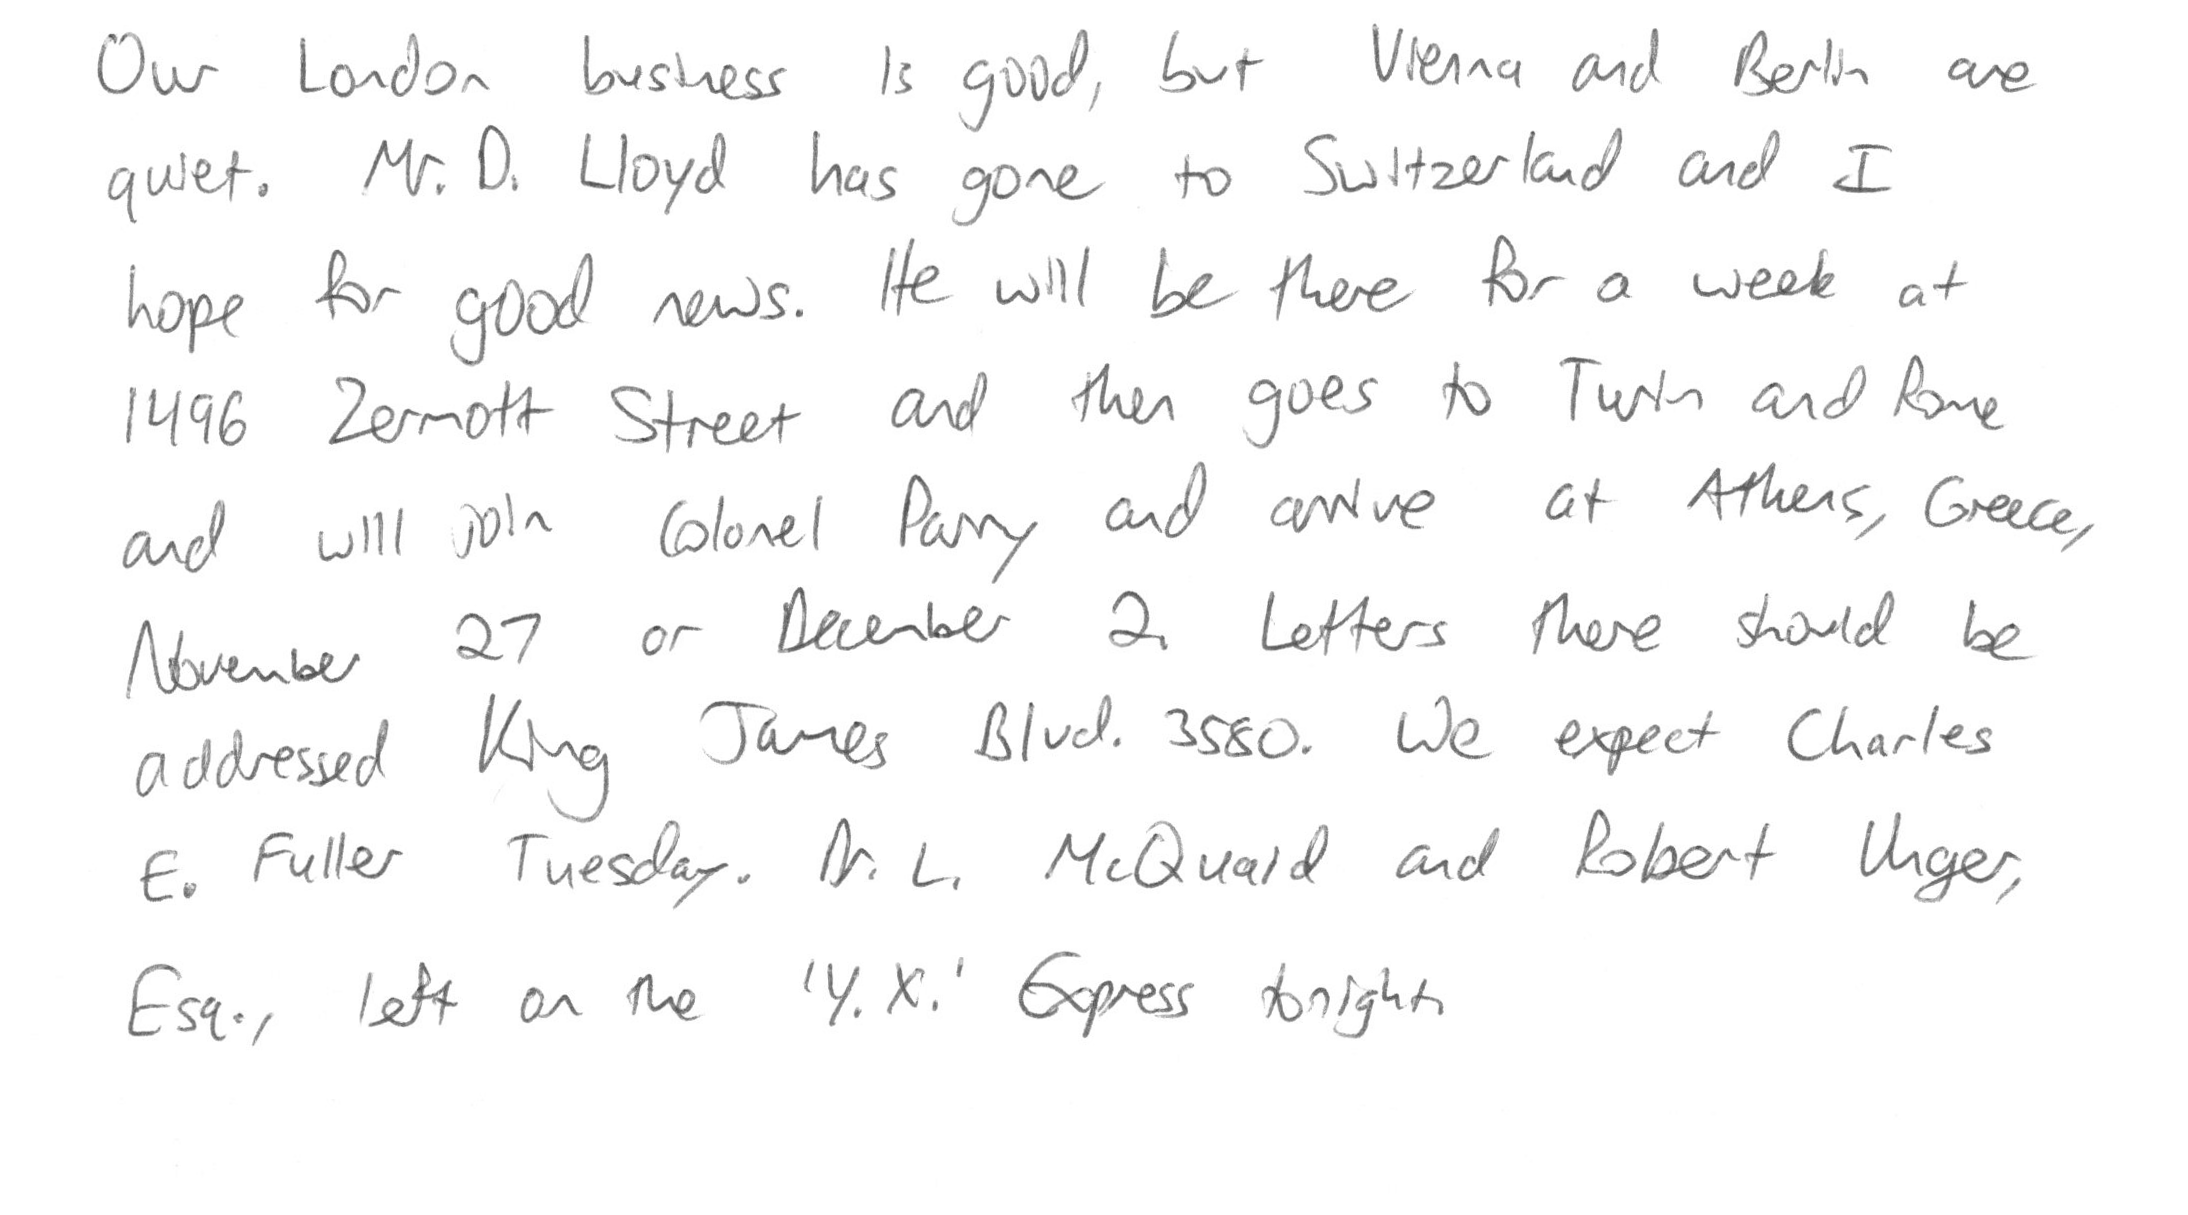 Our London business is good, but Vienna and Berlin are
quiet. Mr. D. Lloyd has gone to Switzerland and I
hope for good news. He will be there for a week at
1496 Zermott Street and then goes to Turin and Rome
and will join Colonel Parry and arrive at Athens, Greece,
November 27 or December 2. Letters there should be
addressed King James Blvd. 3580. We expect Charles
E. Fuller Tuesday. Dr. L. McQuaid and Robert Unger,
Esq., left on the 'Y.X.' Express tonight.